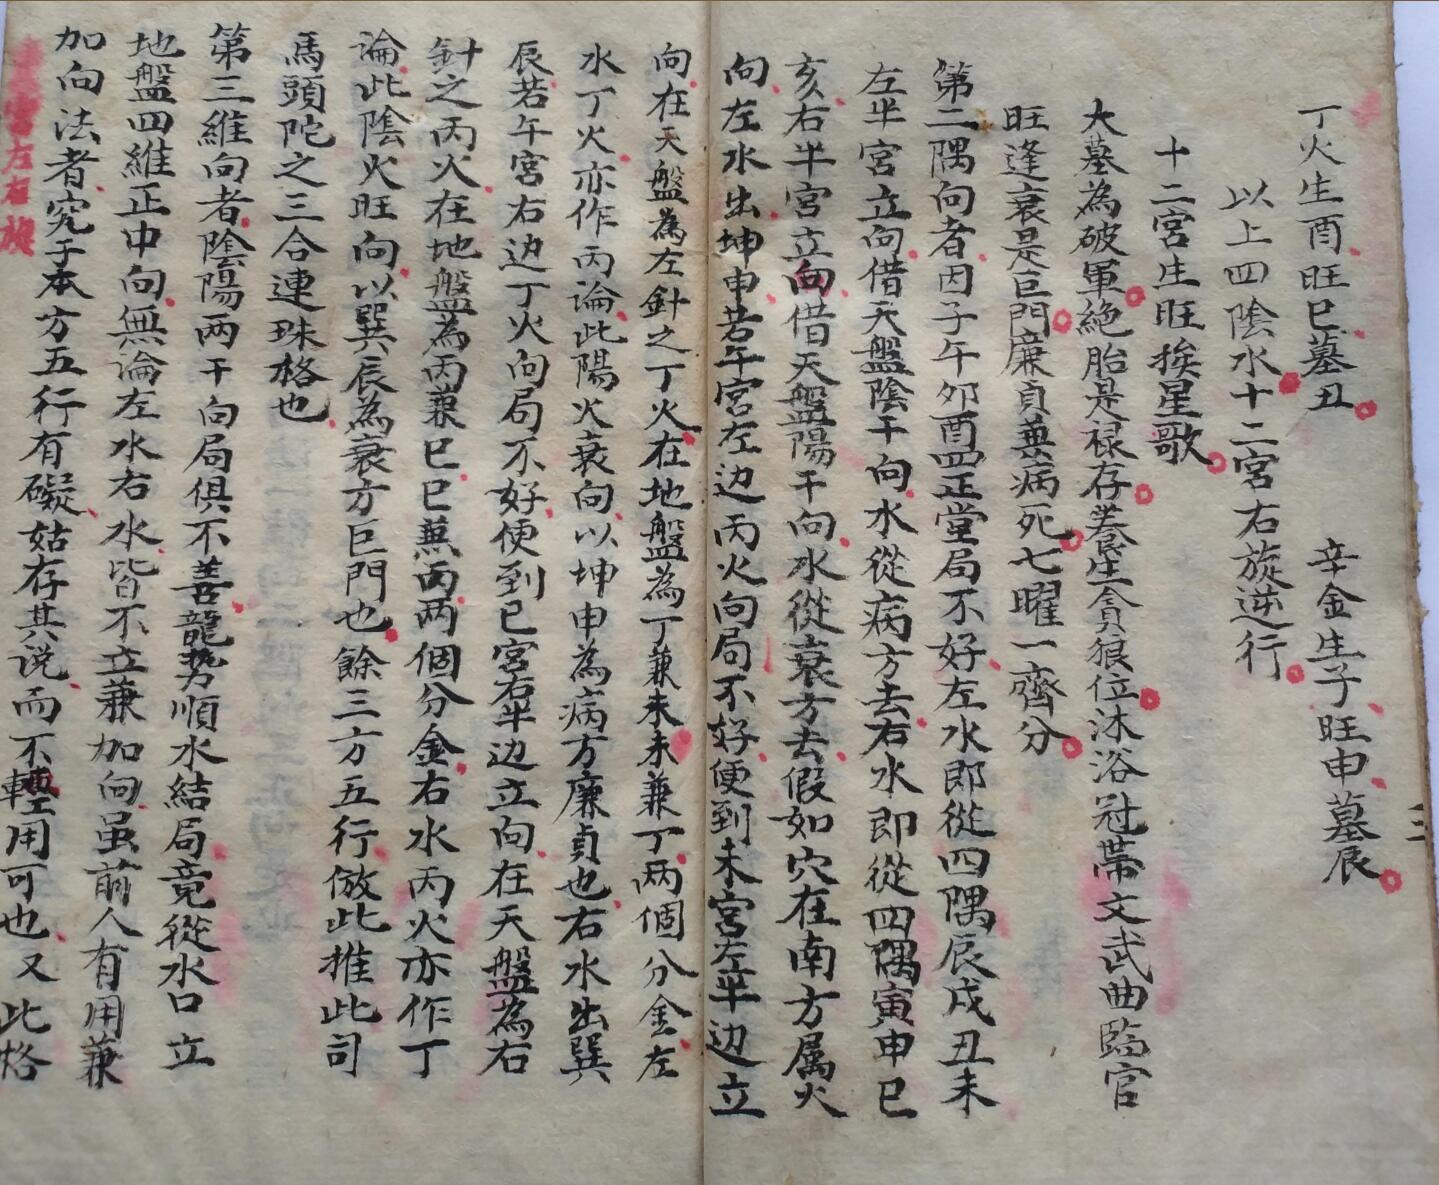 丁火生酉旺巳墓丑 辛金生子旺申墓辰
以上四陰水十二宮右旋逆行
十二宮生旺挨星歌
大墓為破軍絶胎是禄存養生貪狼位沐浴冠帶文武曲臨官
旺逢衰是巨門廉貞兼病死七曜一齊分
第二隅向者因子午卯酉四正堂局不好左水即從四隅辰戌丑未
左半宮立向借天盤陰干向水從病方去右水即從四隅寅申巳
亥右半宮立向借天盤陽干向水從衰方去假如穴在南方属火
向左水出坤申若午宮左边丙火向局不好便到未宮左半边立
向在天盤為左針之丁火在地盤為丁兼未未兼丁两個分金左
水丁火亦作丙論此陽火衰向以坤申為病方廉貞也右水出巽
辰若午宮右边丁火向局不好便到巳宮右半边立向在天盤為右
針之丙火在地盤為丙兼巳巳兼丙两個分金右水丙火亦作丁
論此陰火旺向以巽辰為衰方巨門也餘三方五行倣此推此司
馬頭陀之三合連珠格也
第三維向者陰陽两干向局俱不善龍势順水結局竟從水口立
地盤四維正中向無論左水右水皆不立兼加向虽前人有用兼
加向法者究于本方五行有礙姑存其说而不輕用可也又此格
宮左右旋
三